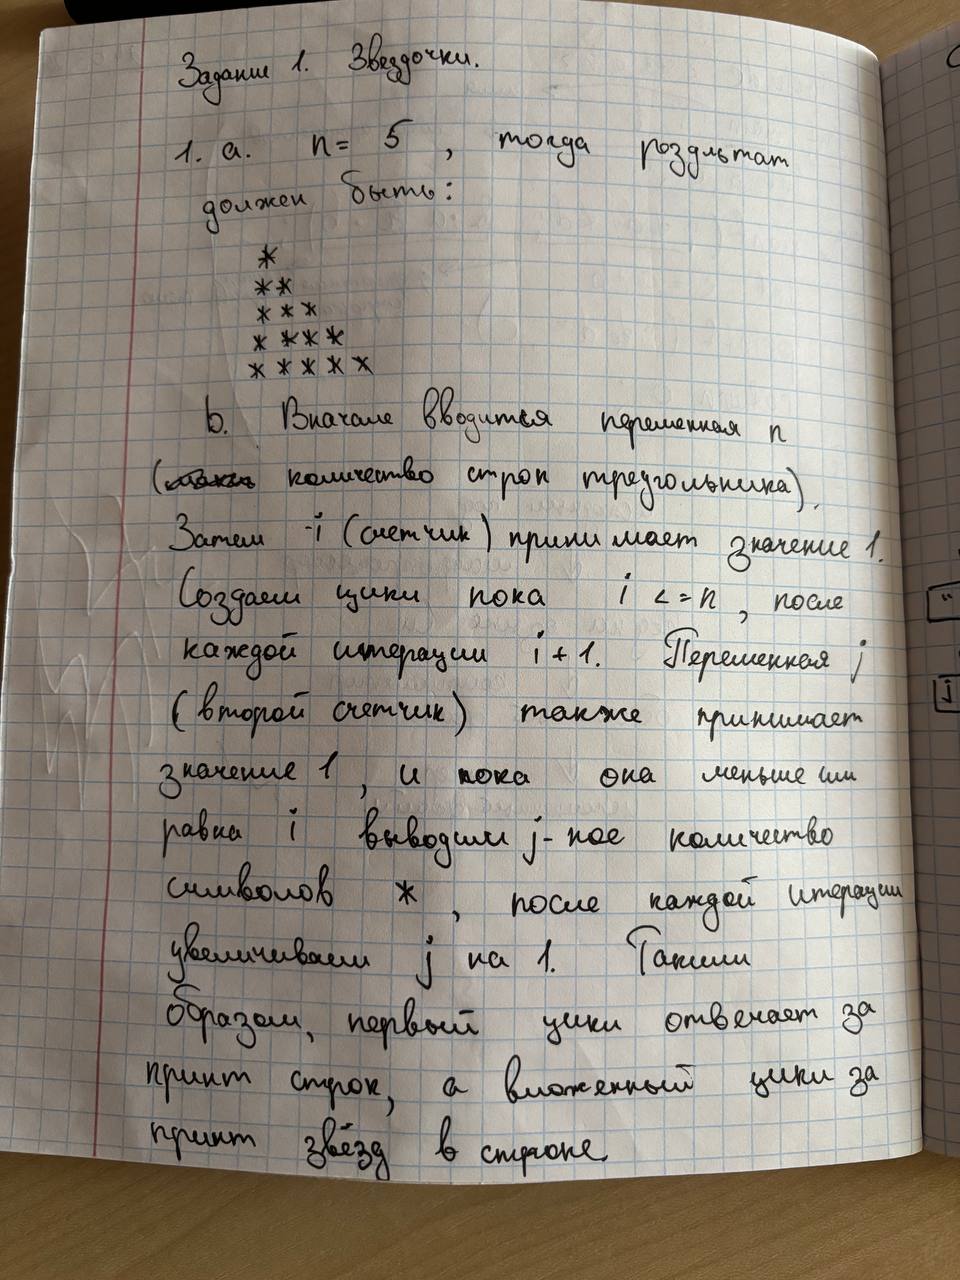 Задание 1. Звездочки.
1. a. n = 5 , тогда роздльтат
должен быть:
*
**
* * *
* ***
* * * * *
b. Вначале вводится переменная n
( количество строк треугольника).
Затем i (счетчик) принимает значение 1.
Создаем цикл пока i <= n , после
каждой итерации i + 1. Переменная j
( второй счетчик) также принимает
значение 1 , и пока она меньше или
равна i выводим j-ное количество
символов * , после каждой итерации
увеличиваем j на 1. Таким
образом, первый цикл отвечает за
принт строк, а вложенный цикл за
принт звёзд в строке.